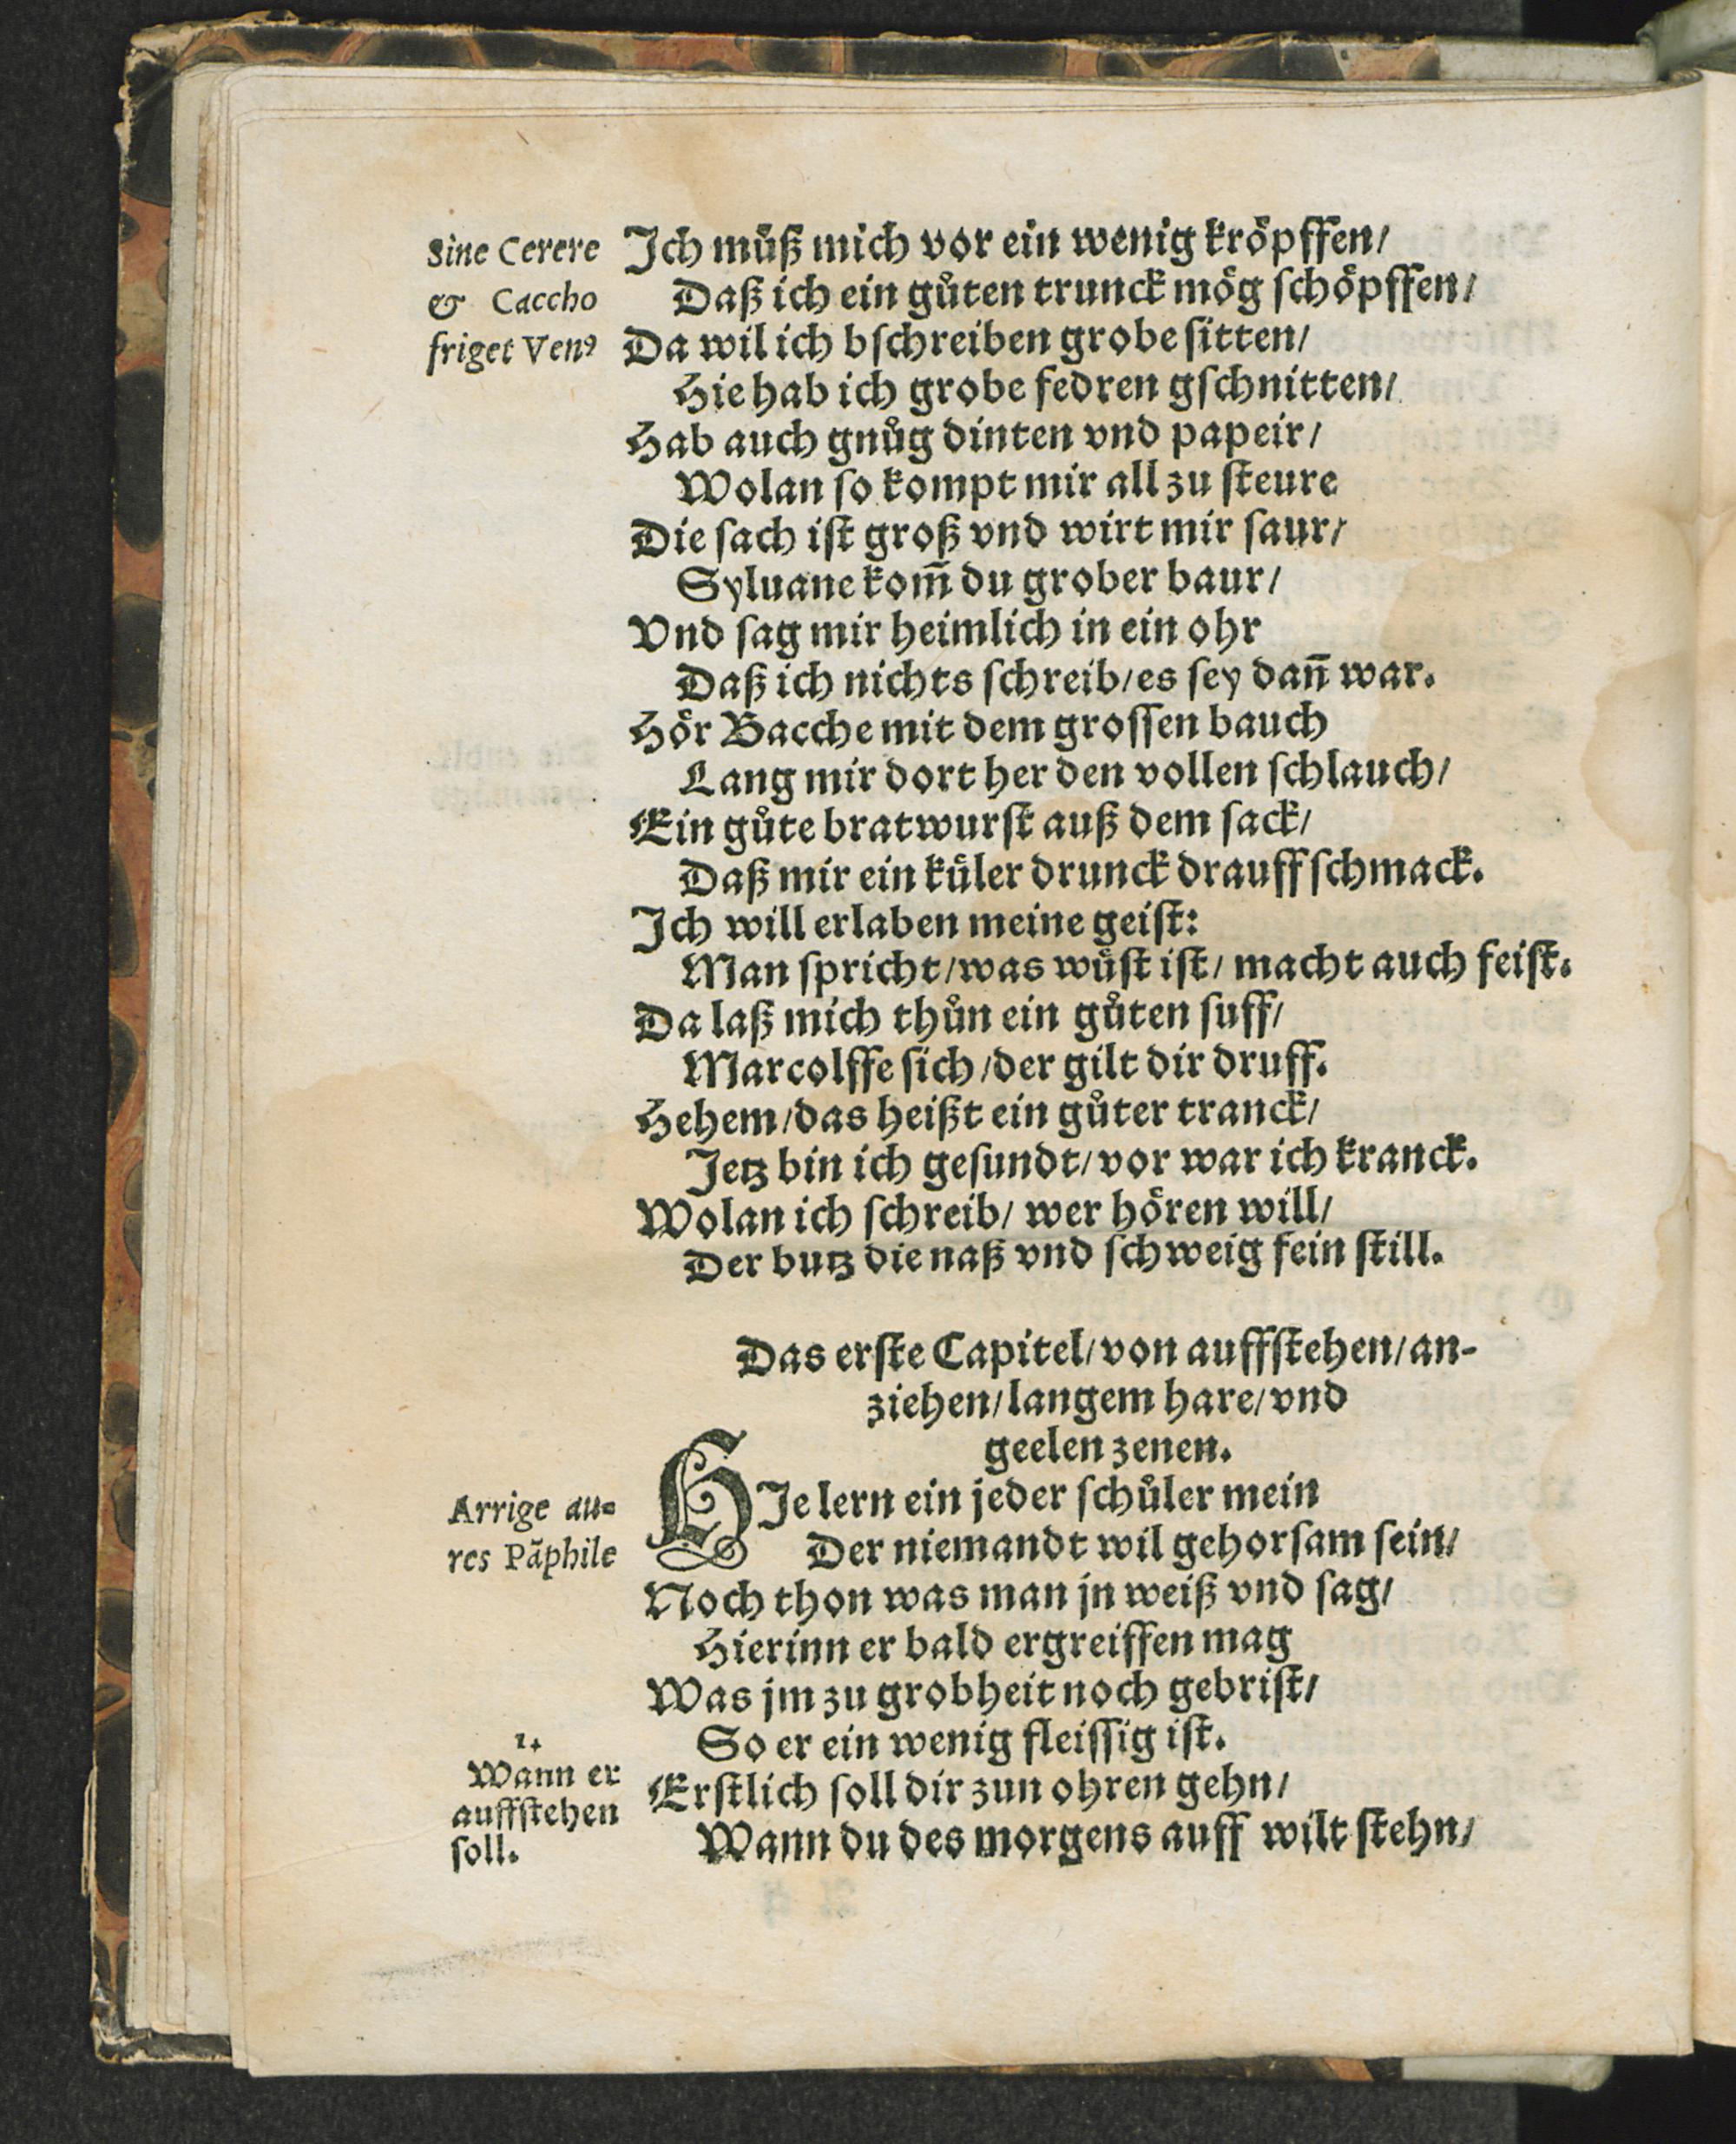 Sine Cerere
& Caccho
friget Venꝰ
Ich můß mich vor ein wenig kröpffen/
Daß ich ein gůten trunck mög schöpffen/
Da wil ich bschreiben grobe sitten/
Hie hab ich grobe fedren gschnitten/
Hab auch gnůg dinten vnd papeir/
Wolan so kompt mir all zu steure
Die sach ist groß vnd wirt mir saur/
Syluane kom̄ du grober baur/
Vnd sag mir heimlich in ein ohr
Daß ich nichts schreib/es sey dañ war.
Hör Bacche mit dem grossen bauch
Lang mir dort her den vollen schlauch/
Ein gůte bratwurst auß dem sack/
Daß mir ein küler drunck drauff schmack.
Ich will erlaben meine geist:
Man spricht/was wůst ist/ macht auch feist.
Da laß mich thůn ein gůten suff/
Marcolffe sich/der gilt dir druff.
Hehem/das heißt ein gůter tranck/
Jetz bin ich gesundt/vor war ich kranck.
Wolan ich schreib/ wer hören will/
Der butz die naß vnd schweig fein still.
Das erste Capitel/von auffstehen/an-
ziehen/langem hare/vnd
geelen zenen.
Arrige au-
res Pãphile
HIe lern ein jeder schůler mein
Der niemandt wil gehorsam sein/
Noch thon was man jn weiß vnd sag/
Hierinn er bald ergreiffen mag
Was jm zu grobheit noch gebrist/
So er ein wenig fleissig ist.
1.
Wann er
auffstehen
soll.
Erstlich soll dir zun ohren gehn/
Wann du des morgens auff wilt stehn/